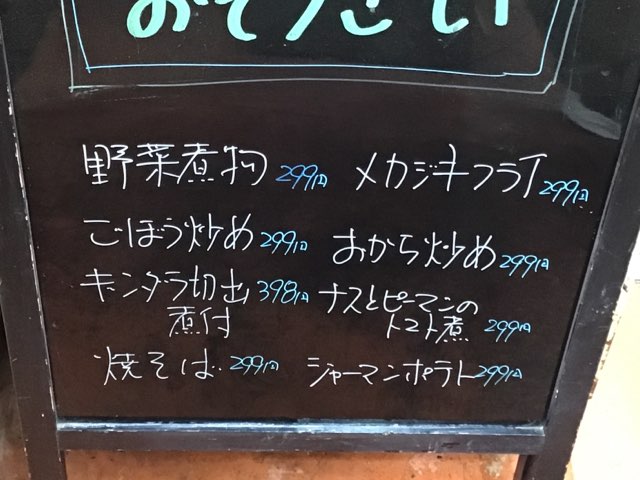 おそうざい
野菜煮物 299円
メカジキフライ 299円
ごぼう炒め 299円
おから炒め 299円
キンダラ切出 398円
煮付
ナスとピーマンの
トマト煮 299円
焼そば 299円
ジャーマンポテト 299円